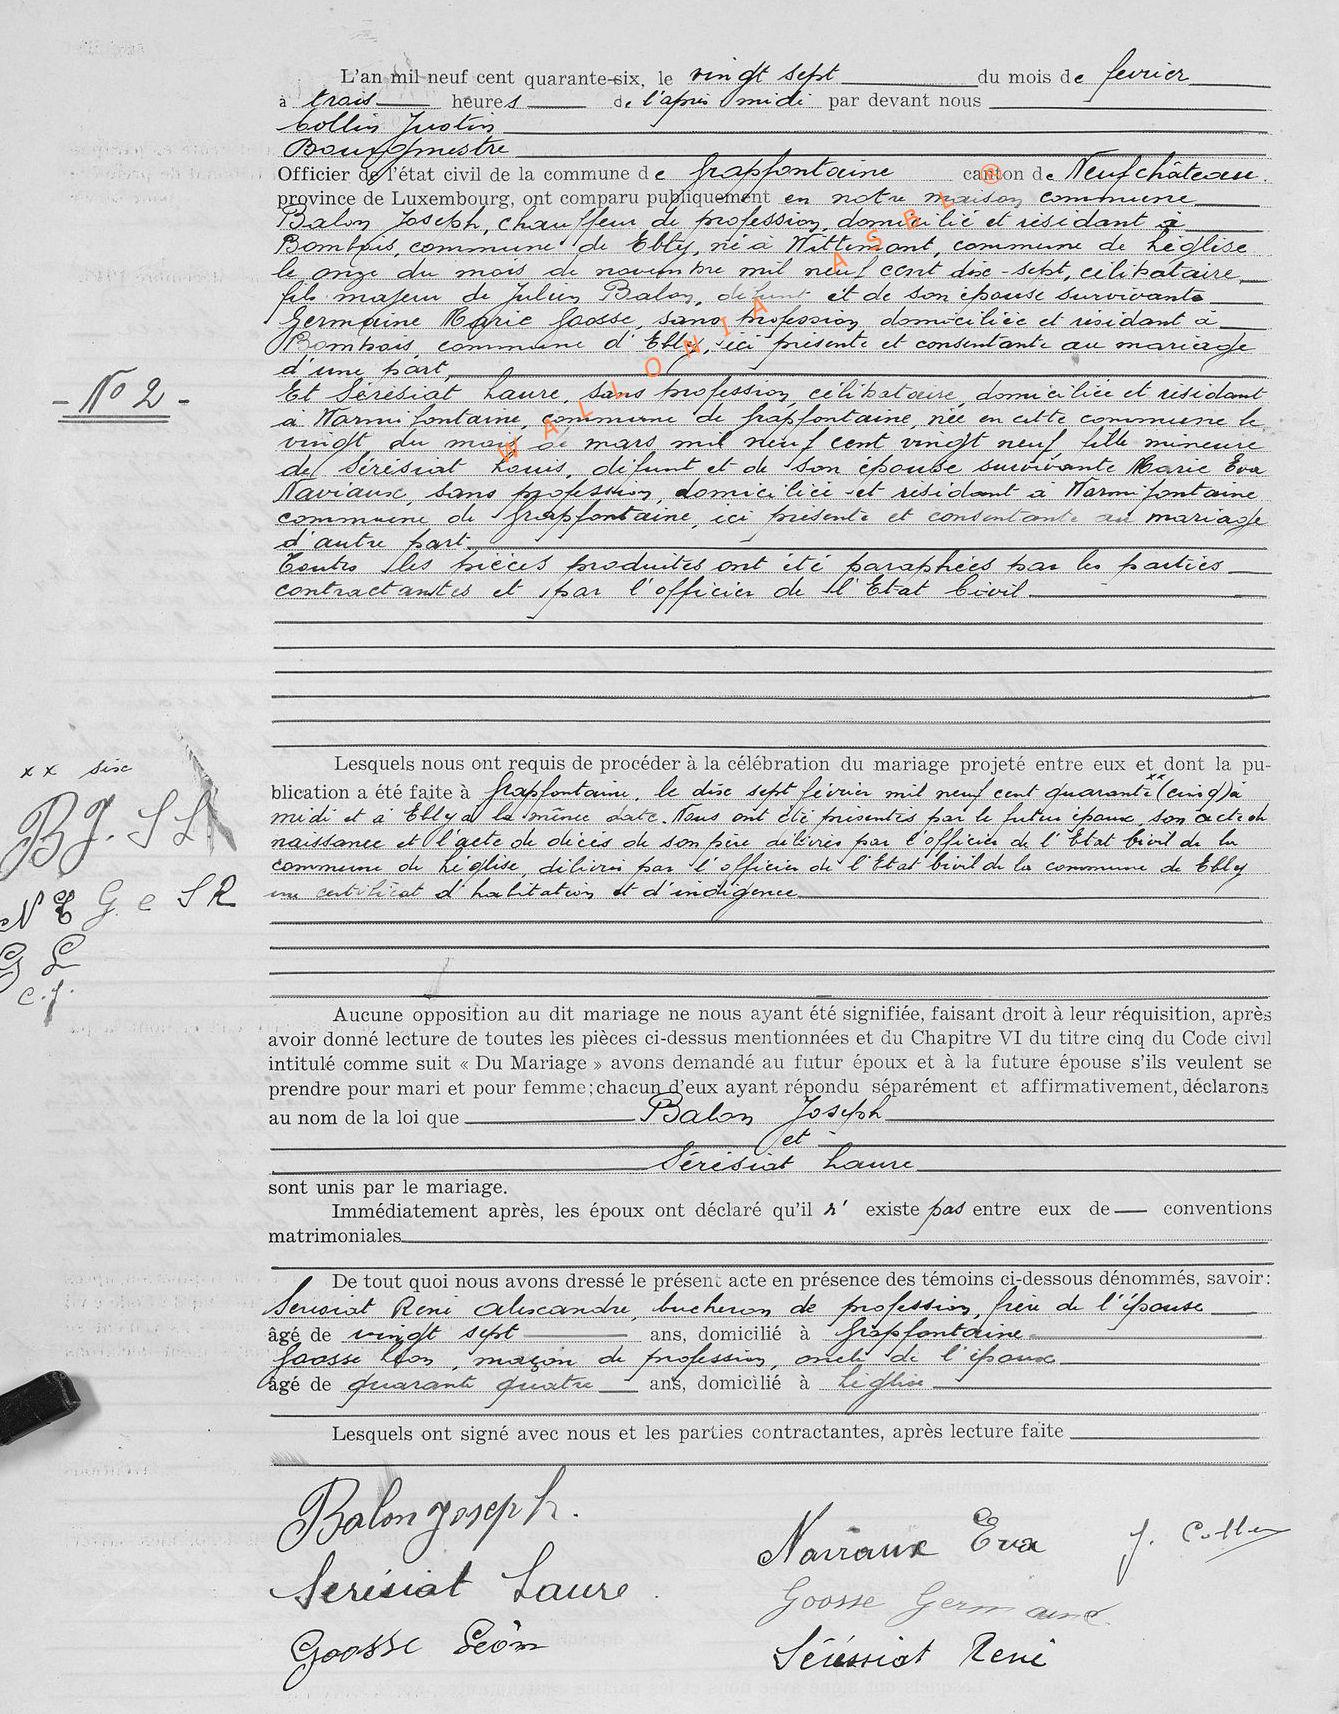 L'an mil neuf cent quarante-six, le vingt sept du mois de fevrier
à trois heures de l'après midi par devant nous
Collin Justin
Bourgmestre
Officier de l'état civil de la commune de Grapfontaine canton de Neufchâteau
province de Luxembourg, ont comparu publiquement en notre maison commune
Balon Joseph, chauffeur de profession, domicilié et résidant à
Bombois, commune de Ebly, né à Wittimont, commune de Léglise
le onze du mois de novembre mil neuf cent dix-sept, célibataire,
fils majeur de Julien Balon, défunt et de son épouse survivante
Germaine Marie Goosse, sans profession, domiciliée et résidant à
Bombois, commune d'Ebly, ici présente et consentante au mariage
d'une part,
- No 2 -
Et Sérésiat Laure, sans profession, célibataire, domiciliée et résidant
à Warmifontaine, commune de Grapfontaine, née en cette commune le
vingt du mois de mars mil neuf cent vingt neuf, fille mineure
de Sérésiat Louis, défunt et de son épouse survivante Marie Eva
Naviaux, sans profession, domiciliée et résidant à Warmifontaine
commune de Grapfontaine, ici présente et consentante au mariage
d'autre part.
Toutes les pièces produites ont été paraphées par les parties
contractantes et par l'officier de l'Etat Civil.
WALLONIA ASBL ®
Lesquels nous ont requis de procéder à la célébration du mariage projeté entre eux et dont la pu-
xx six
blication a été faite à Grapfontaine, le dix sept février mil neuf cent quarante xx (cinq) à
midi et à Ebly à la même date. Nous ont été présentés par le futur époux, son acte de
naissance et l'acte de décès de son père délivrés par l'officier de l'Etat Civil de la
commune de Léglise, délivré par l'officier de l'Etat Civil de la commune de Ebly
un certificat d'habitation et d'indigence
BJ. S L
N E G. e S R
G L
C.J.
Aucune opposition au dit mariage ne nous ayant été signifiée, faisant droit à leur réquisition, après
avoir donné lecture de toutes les pièces ci-dessus mentionnées et du Chapitre VI du titre cinq du Code civil
intitulé comme suit « Du Mariage » avons demandé au futur époux et à la future épouse s'ils veulent se
prendre pour mari et pour femme; chacun d'eux ayant répondu séparément et affirmativement, déclarons
au nom de la loi que Balon Joseph
et
Sérésiat Laure
sont unis par le mariage.
Immédiatement après, les époux ont déclaré qu'il n' existe pas entre eux de — conventions
matrimoniales
De tout quoi nous avons dressé le présent acte en présence des témoins ci-dessous dénommés, savoir:
Serésiat René Alexandre, bucheron de profession, frère de l'épouse
âgé de vingt sept ans, domicilié à Grapfontaine
Goosse Léon, maçon de profession, oncle de l'époux
âgé de quarante quatre ans, domicilié à Léglise
Lesquels ont signé avec nous et les parties contractantes, après lecture faite
Balon Joseph.
Naviaux Eva
J. Collin
Serésiat Laure.
Goosse Germaine.
Goosse Léon
Sérésiat René